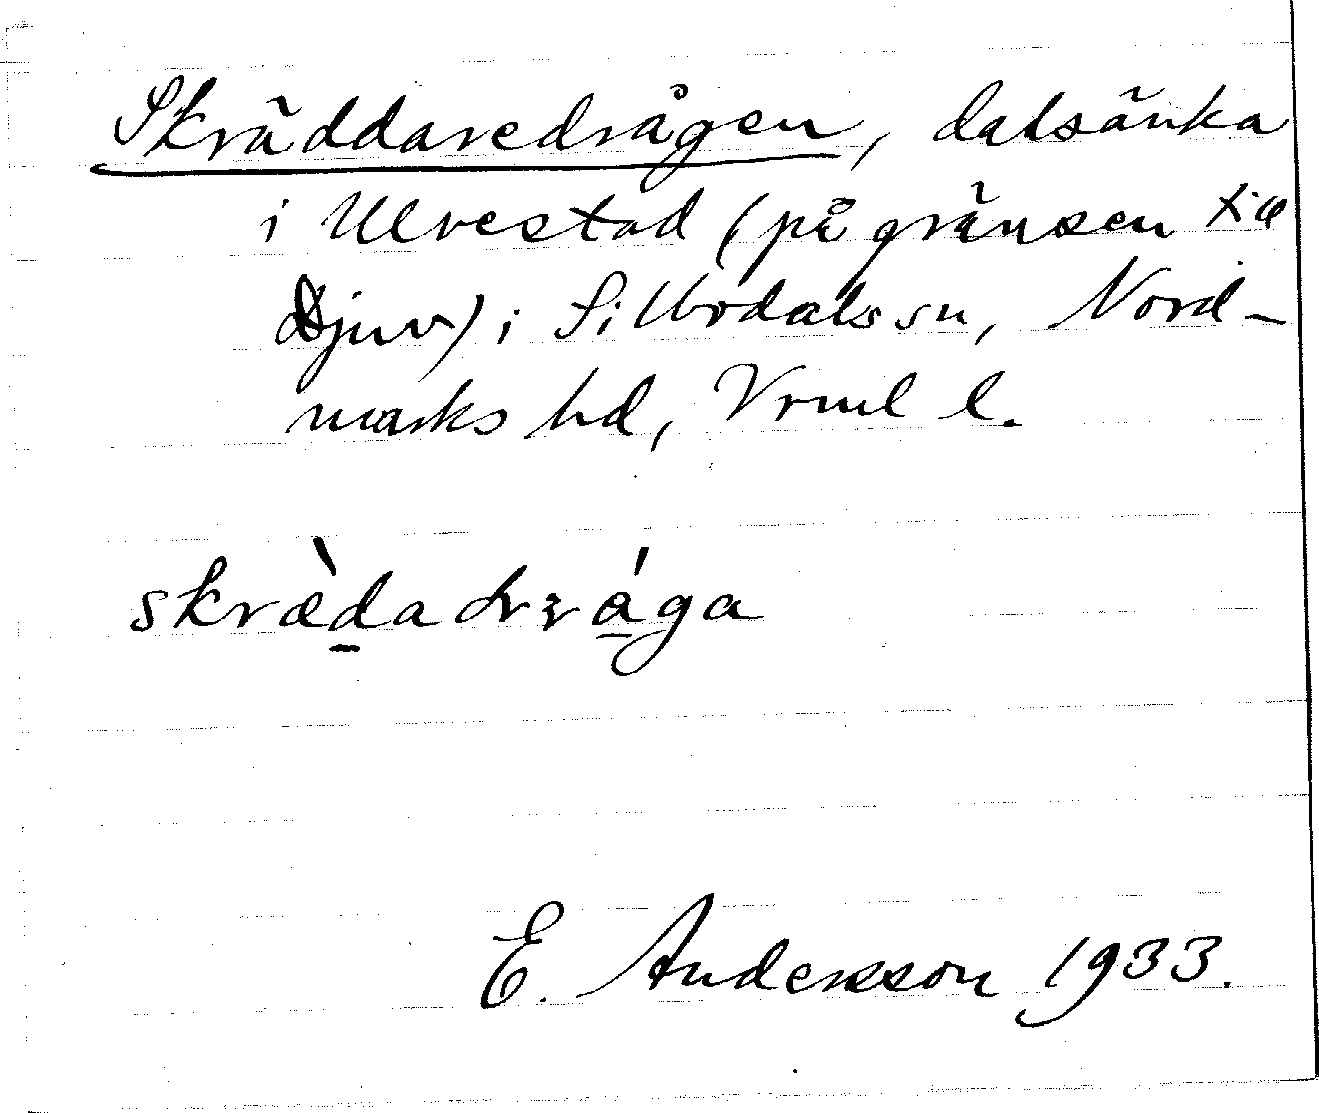 Skräddaredrågen, dalsänka
i Ulvestad (på gränsen till
Djuv) i Sillbodals sn, Nord-
marks hd, Vrml l.
skræ̀dadrága
E. Andersson 1933.